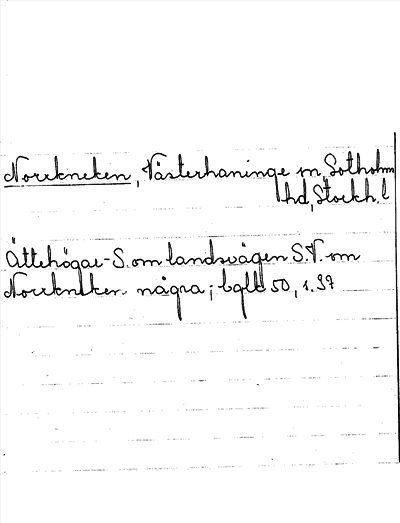 Norrkneken, Västerhaninge sn, Sotholm
hd, Stockh. l
Ättehögar - S. om landsvägen S.V. om
Norrkneken några; bglt 50, s. 37